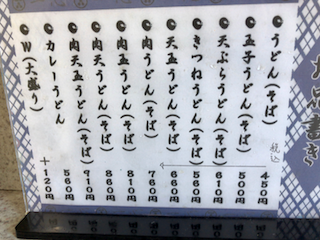 お品書き
うどん(そば) 450円
税込
玉子うどん(そば) 500円
天ぷらうどん(そば) 610円
きつねうどん(そば) 560円
天玉うどん(そば) 660円
肉うどん(そば) 760円
肉玉うどん(そば) 810円
肉天うどん(そば) 860円
肉天玉うどん(そば) 910円
カレーうどん 560円
W(大盛り) +120円